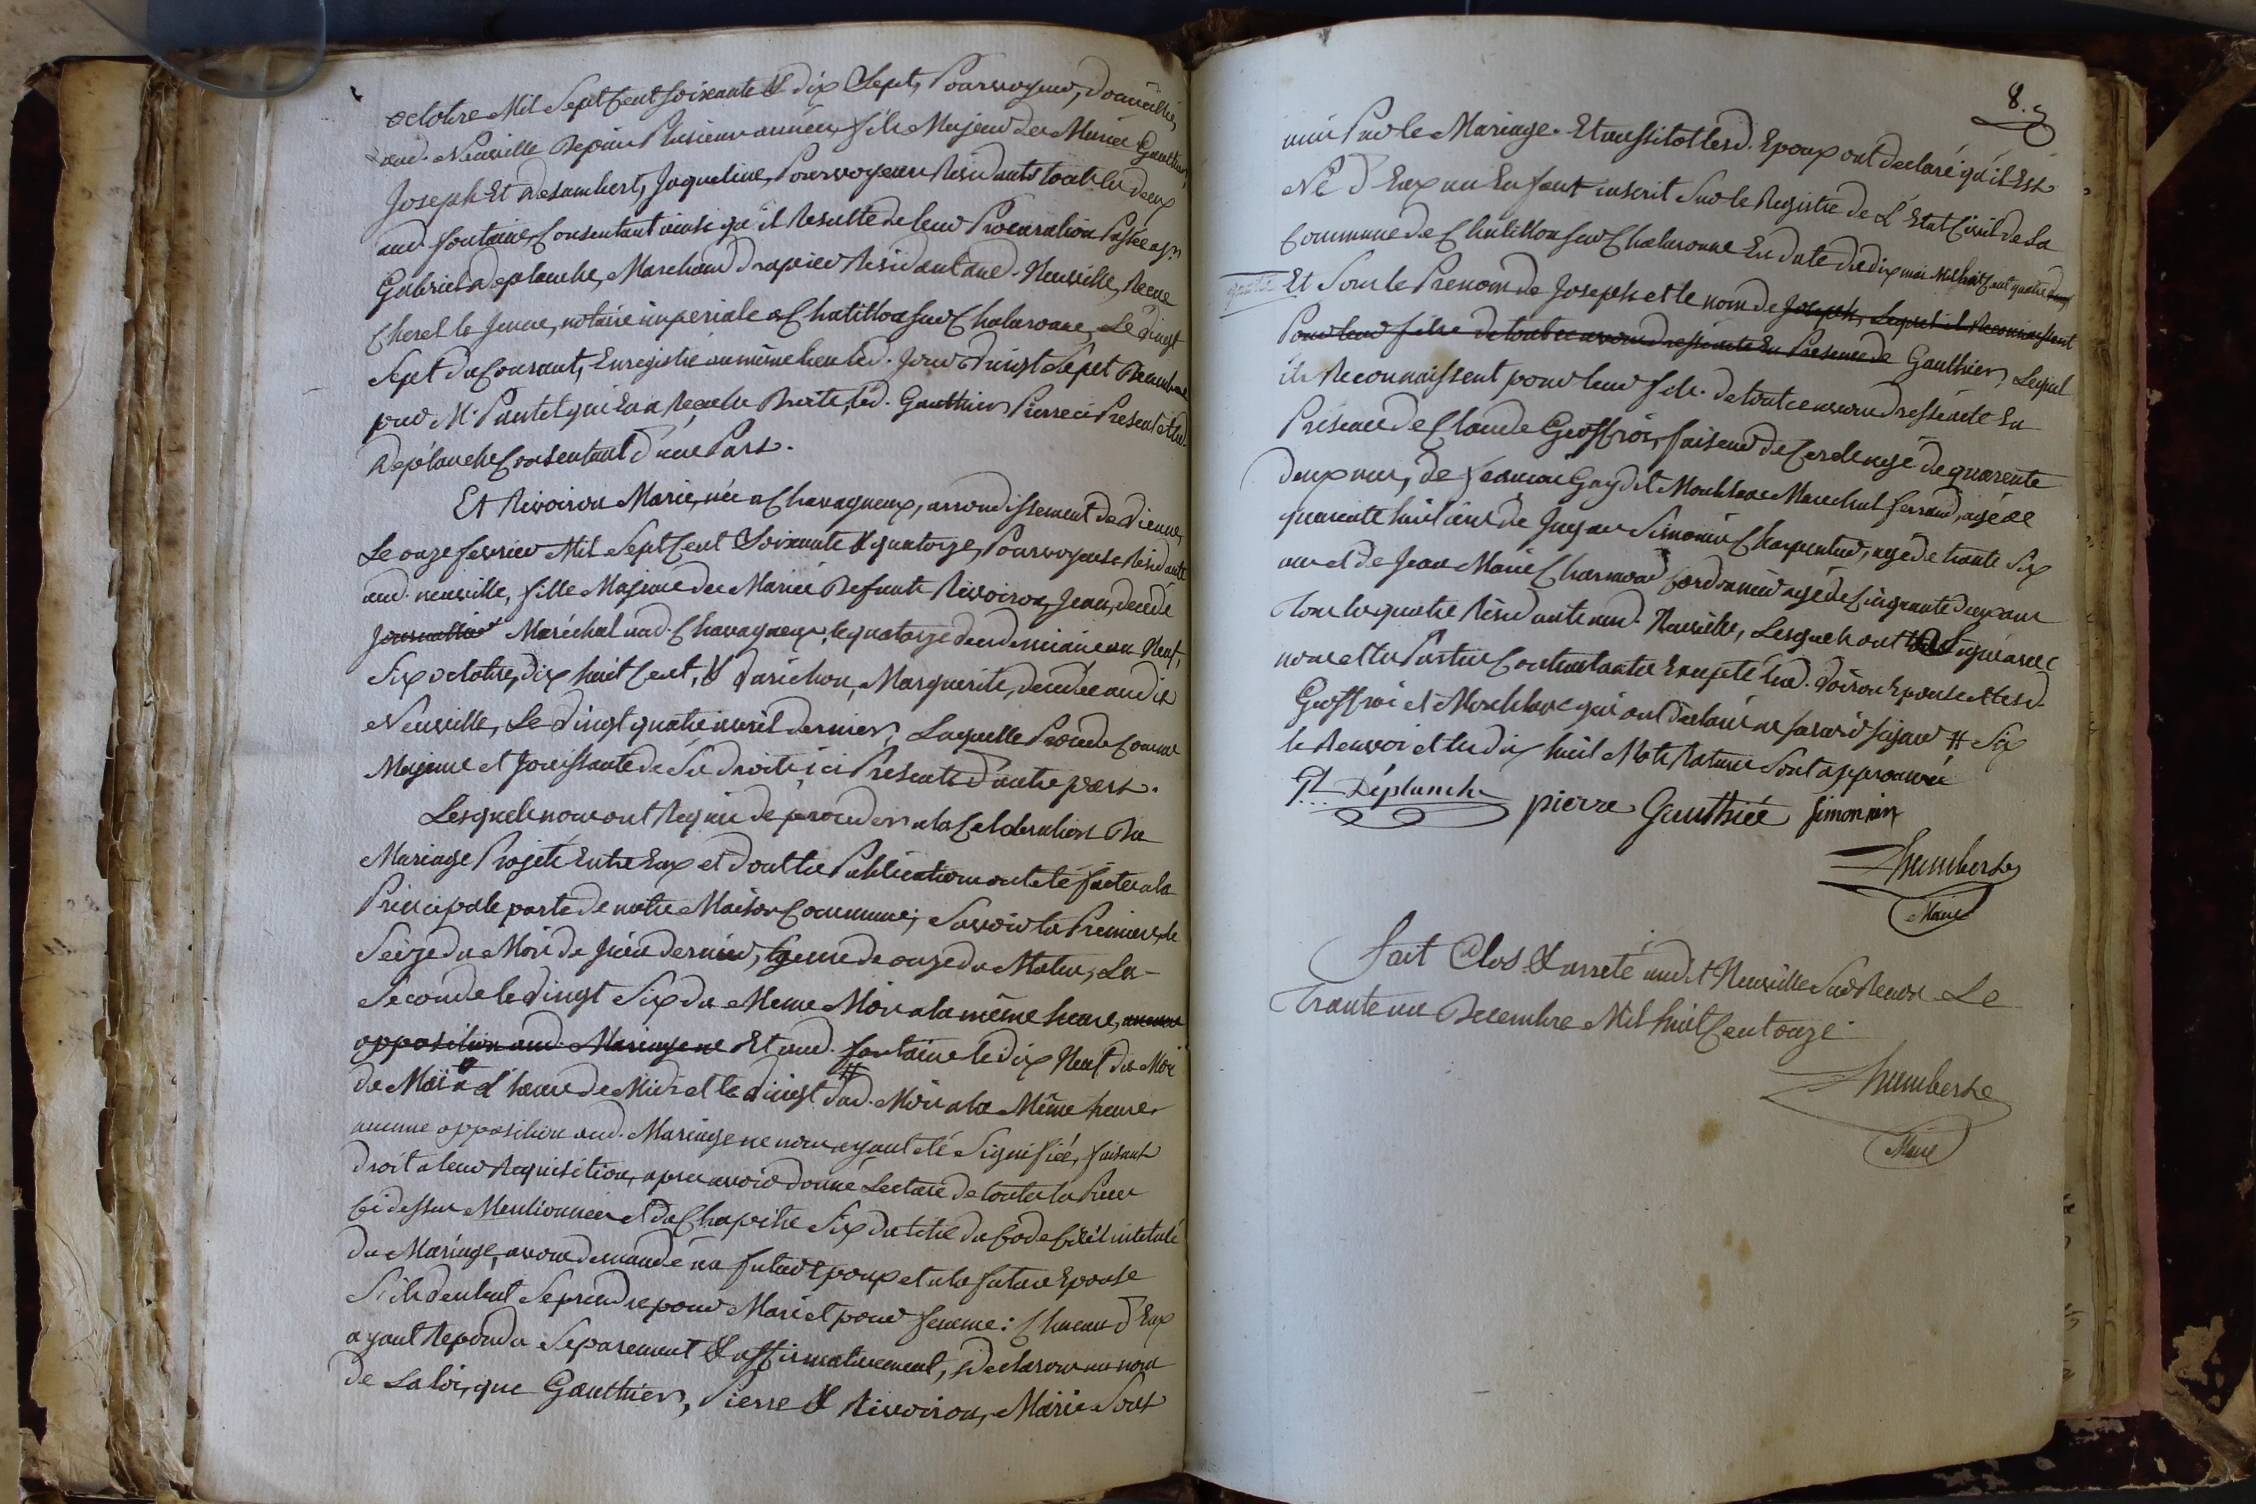 octobre Mil Sept Cent soixante & dix Sept, Pourvoyeur, domicilié
aud. Neuville Depuis Plusieurs années, fils Majeur des Mariés Gauthier,
Joseph Et Desambert, Jaqueline, Pourvoyeurs Residants tous les deux
aud. fontaine, Consentant ainsi qu'il Resulte de leur Procuration Passée a Sr.
Gabriel Deplanche, Marchand Drapier Résidant aud. Neuville, Recue
Cherel le Jeune, notaire imperiale a Chatillon sur Chalaronne, Le vingt
Sept du Courant, Enregistrée au même lieu led. Jour vingt Sept
par Mr. Pantet qui En a Reçu les Droits, led. Gauthier Pierre ci Présent et led.
Deplanche Consentant d'une Part.
Et Rivoiron Marie, née a Chavagneux, arrondissement de Vienne,
Le onze fevrier Mil Sept Cent Soixante & quatorze, Pourvoyeuse Résidante
aud. neuville, fille Majeure des Mariés Defunts Rivoiron, Jean, décédé
Journallier Maréchal aud. Chavagneux, le quatorze vendemiaire an Neuf,
Six octobre, dix huit Cent, & Varichon, Marguerite, decedée audit
Neuville, Le vingt quatre avril dernier, Laquelle Procede Comme
Majeure et Jouissante de Ses droits, ici Presente d'autre part.
Lesquels nous ont Requis de proceder a la Celebration Du
Mariage Projeté Entre Eux et dont les Publications ont été faites a la
Principale porte de notre Maison Commune; Savoir la Premiere, le
Seize du Mois de Juin dernier, heure de onze du Matin, La
Seconde le vingt Six du Meme Mois a la même heure, aucune
opposition aud. Mariage ne Et aud. fontaine le dix Neuf du Moi
de Mai a L'heure de Midi et le vingt # dud. Mois a la Même heure
aucune opposition aud. Mariage ne nous ayant été Signifiée, faisant
droit a leur Requisition, apres avoir donné Lecture de toutes les Pieces
Ci dessus Mentionnées et du Chapitre Six du titre du Code Civil intitulé
du Mariage, avons demandé au futur Epoux et a la future Epouse
S'ils veulent Se prendre pour Mari et pour femme: Chacun d'Eux
ayant Repondu Separement & affirmativement, Declarons au nom
de La loi, que Gauthier, Pierre & Rivoiron, Marie Sont
8.
unis Par le Mariage. Et aussitot lesd. Epoux ont declaré qu'il Est
Né d'Eux un Enfant inscrit Sur le Registre de L'Etat Civil de la
Commune de Chatillon sur Chalaronne En date du dix mai Mil huit Cent quatre
Et Sous le Prenom de Joseph et le nom de Joseph, Lequel ils Reconnaissent
Pour leur fils de tout ce avons dressé acte En Presence de Gauthier, Lequel
ils Reconnaissent pour leur fils. de tout ce avons dressé acte En
Présence de Claude Geoffroi, faiseur de Cercle agé de quarente
deux ans, de Gay dit Monblanc Marechal ferrand, agé de
quarente huit ans de Simonin Charpentier, agé de trente Six
ans et de Jean Marie Charmond Cordonnier agé de Cinquante deux ans
Tous les quatre Résidants aud. Neuville, Lesquels ont Signé avec
nous et les Parties Contractantes Excepté lad. Epouse et lesd.
Geoffroi et Monblanc qui ont declaré ne Savoir Signer # Six
le Renvoi et les dix huit Mots Raturés Sont approuvés
Gl. Déplanche pierre Gauthiée Simonnin
humbert
Maire
Fait Clos & arreté audit Neuville Sur Renon Le
Trante un Decembre Mil huit Cent onze
humbert
Maire